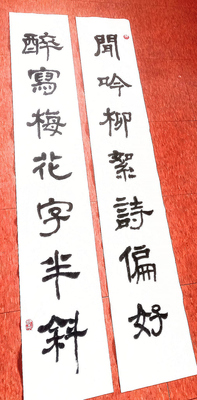 聞吟柳絮詩偏好
醉寫梅花字半斜